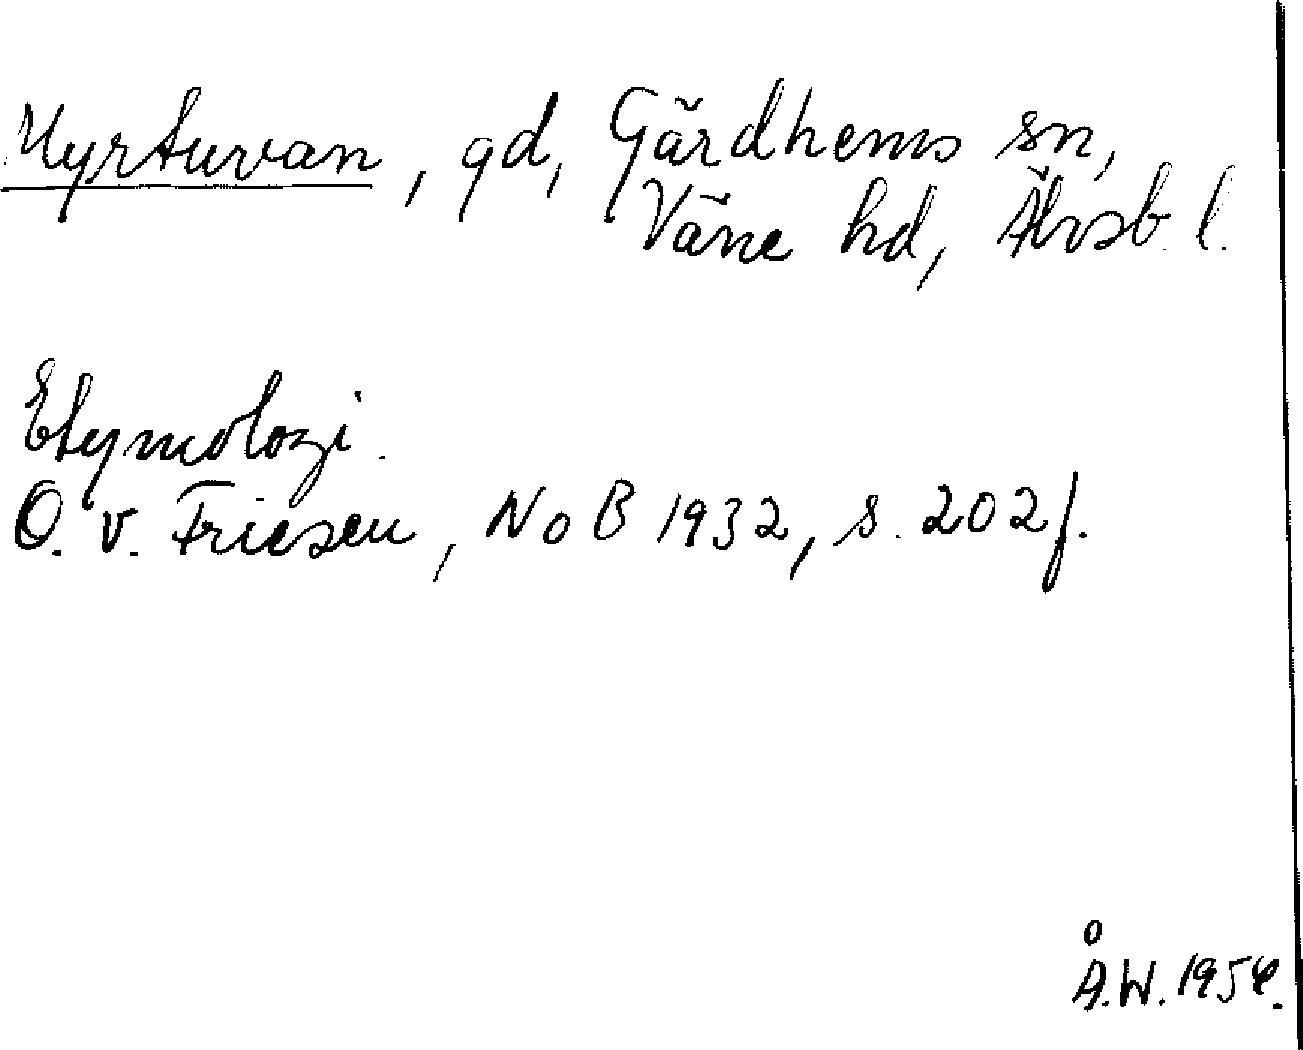 Myrtuvan, gd, Gärdhems sn,
Väne hd, Älvsb. l.
Etymologi.
O. v. Friesen, NoB 1932, s. 202 f.
Å.W. 1954.